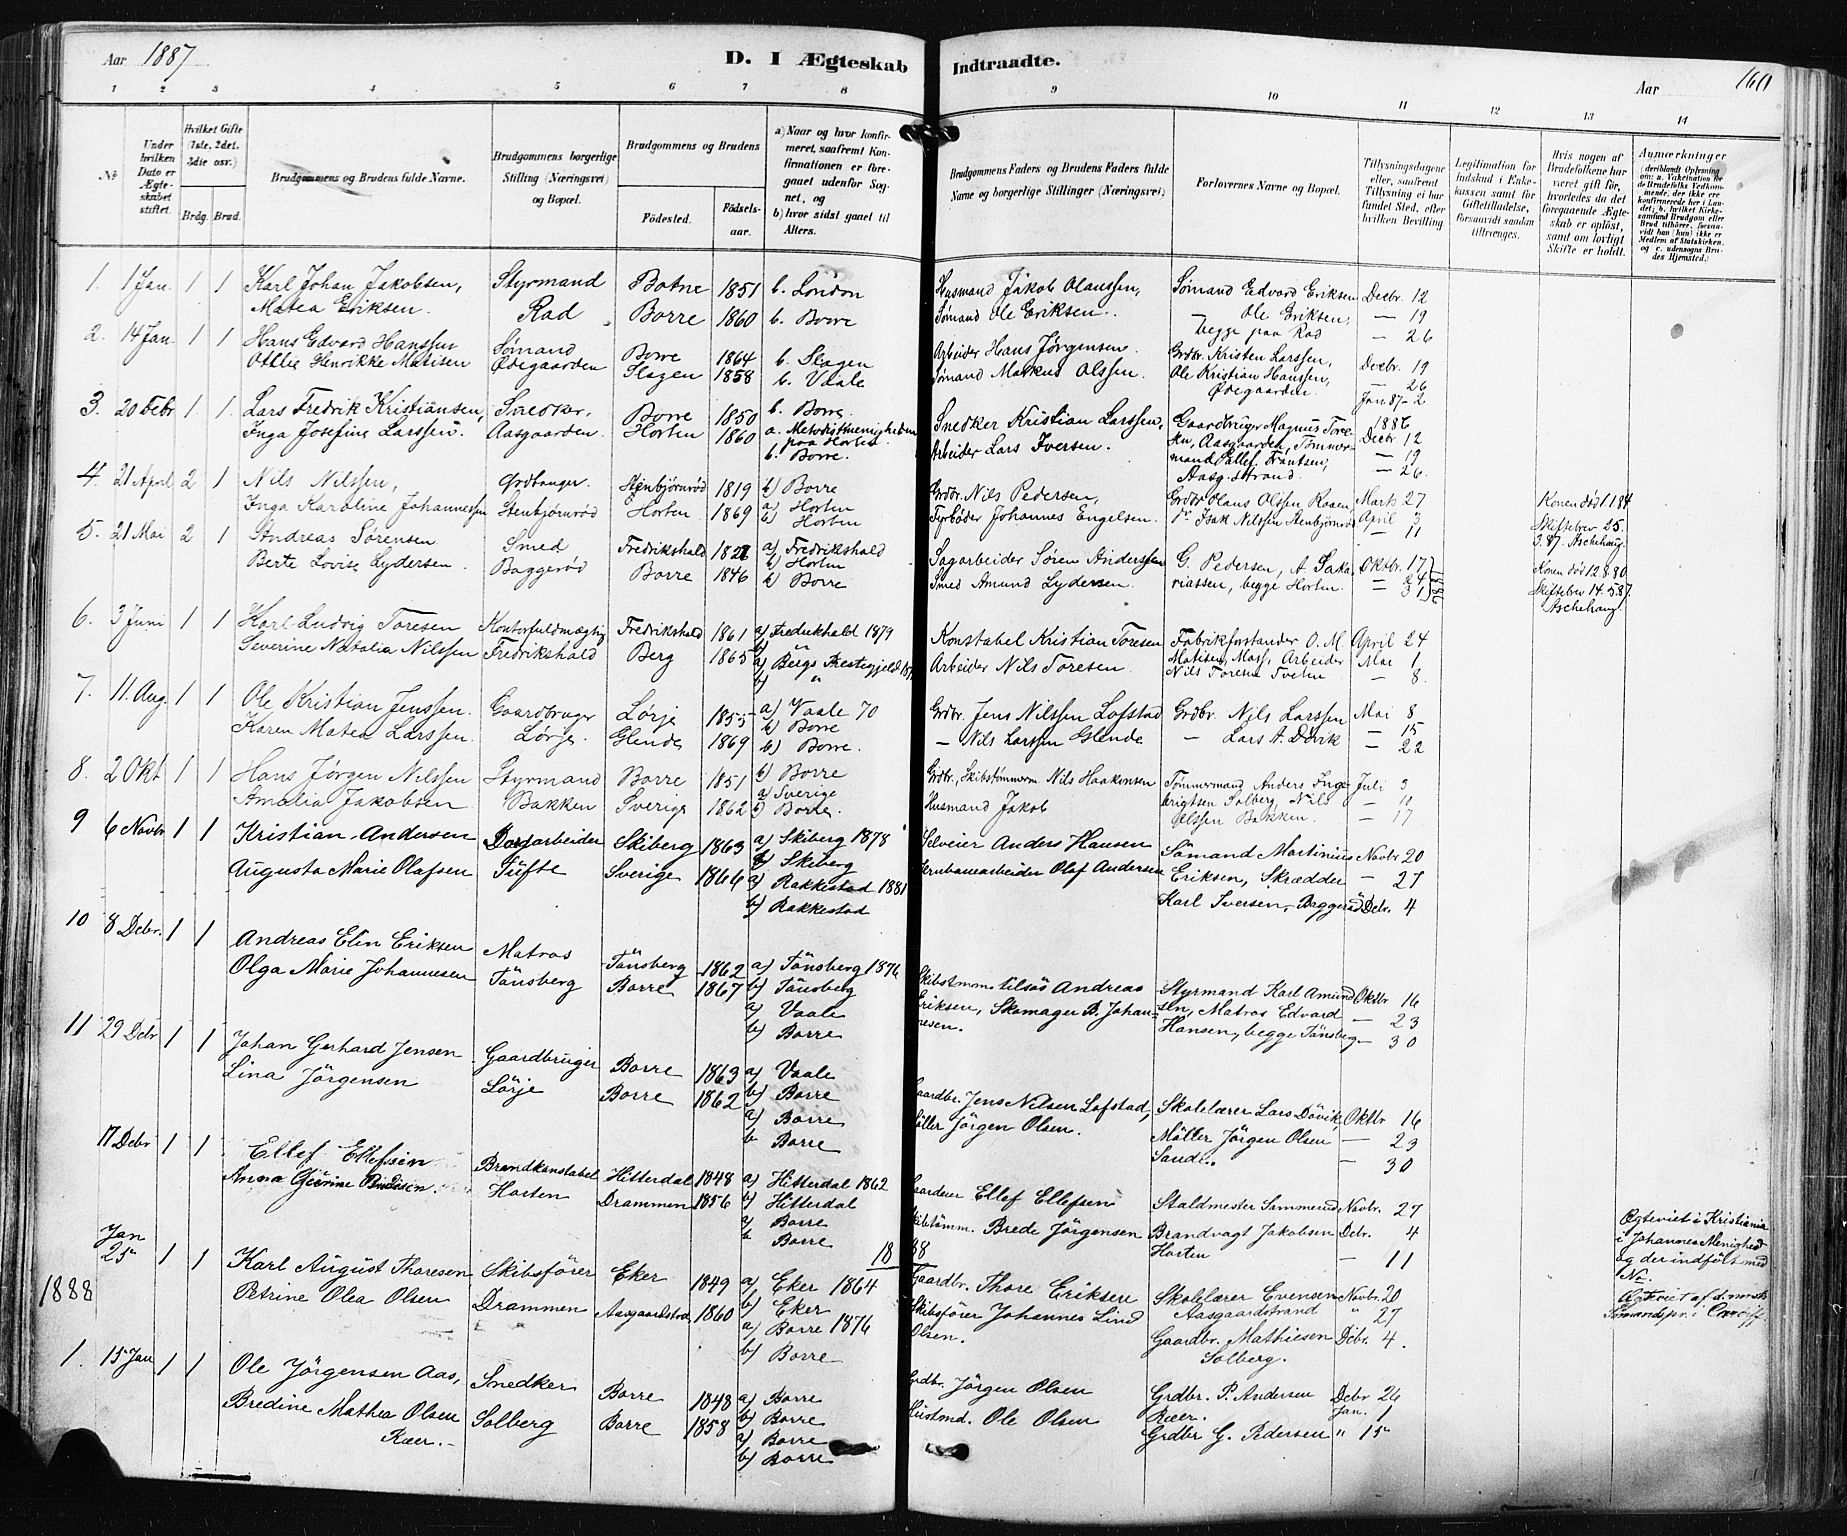 Aar 1887
D. I Ægteskab Indtraadte.
Aar 160
1 2 3 4 5 6 7 8 9 10 11 12 13 14
№
Under hvilken Dato er Ægteskabet stiftet.
Hvilket Gifte (1ste, 2det, 3die osv.)
Brdg. Brud.
Brudgommens og Brudens fulde Navne.
Brudgommens borgerlige Stilling (Næringsvei) og Bopæl.
Brudgommens og Brudens
Fødested. Fødselsaar.
a) Naar og hvor konfirmeret, saafremt Konfirmationen er foregaaet udenfor Sognet, og
b) hvor sidst gaaet til Alters.
Brudgommens Faders og Brudens Faders fulde Navne og borgerlige Stillinger (Næringsvei)
Forlovernes Navne og Bopæl.
Tillysningsdagene eller, saafremt Tillysning ei har fundet Sted, efter hvilken Bevilling
Legitimation for Indskud i Enkekassen samt for Giftetilladelse, forsaavidt saadan tiltrænges.
Hvis nogen af Brudefolkene har været gift før, hvorledes da det foregaaende Ægteskab er opløst, samt om lovligt Skifte er holdt.
Anmærkninger
1. 1 Jan. 1 1 Karl Johan Jakobsen, Styrmand Botne 1851 b. London Husmand Jakob Olaussen, Sømand Edvard Eriksen Decbr. 12
Matea Eriksen. Rad Borre 1860 b. Borre Sømand Ole Eriksen. Ole Eriksen, — 19
begge paa Rad — 26
2. 14 Jan. 1 1 Hans Edvard Hanssen Sømand Borre 1864 b. Slagen Arbeider Hans Jørgensen. Grdbr. Kristen Larssen, Decbr. 19
Otilie Henrikke Matisen Ødegaarden Slagen 1858 b. Vaale Sømand Markus Olssen. Ole Kristian Hanssen, — 26
Ødegaarden. Jan 87 - 2
3. 20 Febr. 1 1. Lars Fredrik Kristiansen, Snedker, Borre 1850 b. Borre. Snedker Kristian Larssen, Gaardbruger Magnus Tore- 1886
Inga Josefine Larssen. Aasgaarden. Horten 1860 a. Metodistmenigheden paa Horten Arbeider Lars Iversen. Aasgaarden, Tømmer- Decbr. 12
b. Borre. mand Ellef Frantsen, — 19
Aasg.strand. — 26.
4. 21 April 2 1 Nils Nilssen, Grdbruger. Stenbjørnrød 1819 b) Borre Grdbr. Nils Pedersen, Grdbr. Olaus Olssen Marts 27 Konen død
Inga Karoline Johannessen Stenbjørnrød Horten 1869 a) Horten Fyrbøder Johannes Engelsen. Isak Nilssen Stenbjørnrød April 3 Skiftebrev 25.
b) Horten — 11 3.87. Aschehoug.
5. 21 Mai 2 1 Andreas Sørensen Smed Fredrikshald a) Fredrikshald Sagarbeider Søren Anderssen G. Pedersen, A. Saka- Oktbr. 17 Konen død 12.8.80
b) Horten
Berte Lovise Lydersen. Baggerød Borre 1846 b) Borre Smed Amund Lydersen. riassen, begge Horten. — 24 Skiftebrev 14.5.87.
— 31 Aschehoug.
6. 3 Juni 1 1 Karl Ludvig Toresen Kontorfuldmægtig Fredrikshald 1861 a) Fredrikhald 1879 Konstabel Kristian Toresen Fabrikforstander O. M. April 24
Severine Natalia Nilssen Fredrikshald Berg 1865 a) Bergs Prestegjeld Arbeider Nils Toresen. Matisen, Moss, Arbeider Mai 1
Nils Toresen — 8.
7. 11. Aug. 1 1 Ole Kristian Jenssen. Gaardbruger Lørje 1855 a) Vaale 70 Grdbr. Jens Nilssen Lofstad Grdbr. Nils Larssen Mai 8
b) Borre
Karen Matea Larssen. Lørje. Glende 1869 b) Borre. — Nils Larssen Glende — Lars A. Døvik — 15
— 22
8. 2 Okt 1 1 Hans Jørgen Nilssen Styrmand Borre 1851 b) Borre Grdbr., Skibstømmerm. Nils Haakensen Tømmermand Anders Inge- Juli 3
a) Sverige
Amalia Jakobsen Bakken Sverige 1862 b) Borre. Husmand Jakob brigtsen Solberg, Nils — 10
Bakken. — 17
9 6 Novbr. 1 1 Kristian Andersen Skiberg 1863 a) Skiberg 1878 Selveier Anders Hansen Sömand Martinius Novbr. 20
b) Skiberg
Augusta Marie Olafsen Tüfte Sverige 1866 a) Rakkestad 1881 Jernbanearbeider Olaf Andersen Eriksen, Skrædder — 27
b) Rakkestad Karl Iversen, Baggeröd Debr. 4
10 8 Debr. 1 1 Andreas Elin Eriksen Matros Tönsberg 1862 a) Tönsberg 1876 Skibstmm. Andreas Styrmand Karl Amund Oktbr 16
Olga Marie Johannesen Tönsberg Borre 1867 b) Tönsberg Eriksen, Skomager B. Johan- sen, Matros Edvard — 23
a) Vaale nesen. Hansen, begge Tönsberg — 30
b) Borre
11 29 Debr 1 1 Johan Gerhard Jensen Gaardbruger Borre 1863 a) Vaale Gaardbr. Jens Nilsen Lofstad, Skolelærer Lars Dövik, Oktbr 16
b) Borre
Lina Jörgensen Lörje Borre 1862 a) Borre Möller Jörgen Olsen. Möller Jörgen Olsen — 23
b Borre Sande. — 30
17 Debr 1 1 Ellef Ellefsen Brandkonstabel Hitterdal 1848 a) Hitterdal 1862 Gaardeier Ellef Ellefsen Staldmester Novbr. 27
b) Hitterdal
Anna Horten Drammen 1856 a) Borre Skibstömm. Brede Jörgensen Brandvagt Jakobsen Debr. 4 Ægteviet i Kristiania i Johannes Menighed og der indført med No.
b Borre Horten — 11
1888
Jan 25 1 1 Karl August Thoresen Skibsförer Eker 1849 a) Eker 1864 Gaardbr. Thore Eriksen Skolelærer Evensen Novbr. 20
b) Eker Aasgaardstrand " 27
Petrine Olea Olsen Drammen Aasgaardstra 1860 a) Borre 1876 Skibsförer Johannes Lind Olsen. Gaardbr. Mathiesen Debr. 4.
b) Borre Solberg.
1888
1. 15 Jan 1 1 Ole Jörgensen Aas, Snedker Borre 1848 a) Borre Grdbr. Jörgen Olsen Grdbr. P. Andersen Debr 26
b) Borre Ræer. Jan. 1
Bredine Mathea Olsen Solberg Borre 1858 a) Borre Husmd. Ole Olsen Grdbr G. Pedersen " 15
Ræer.- b) Borre